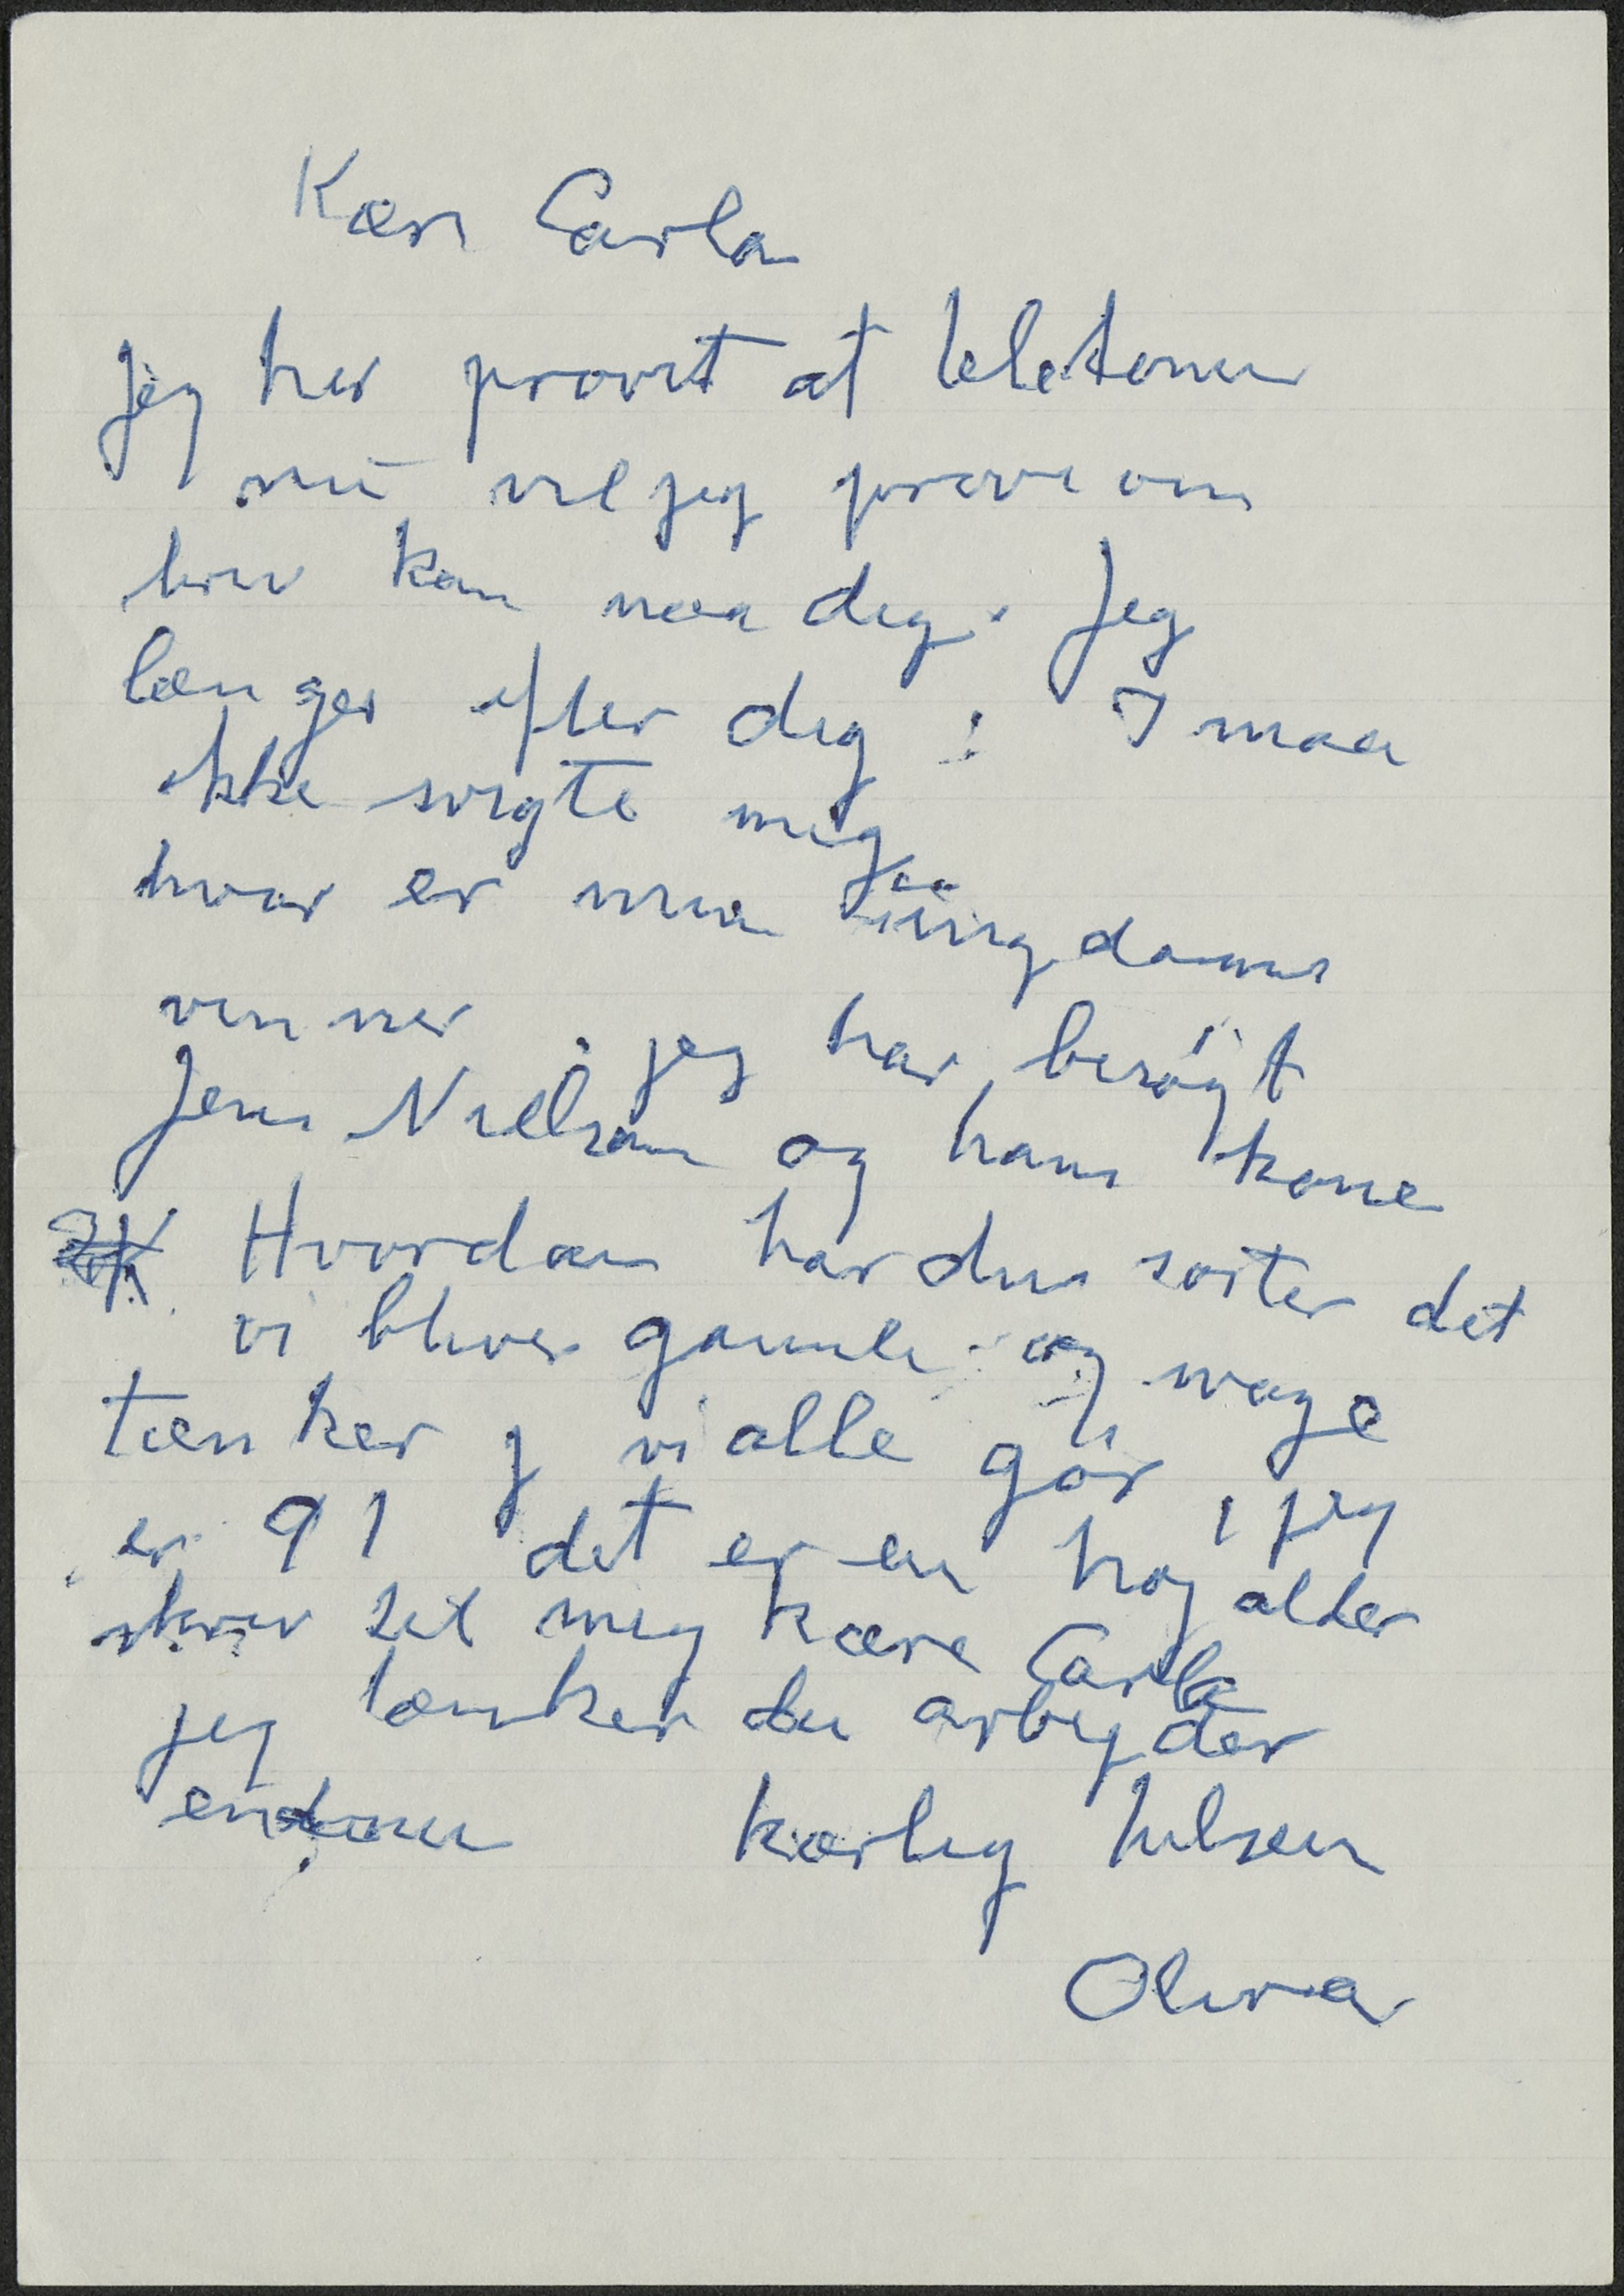 Kær Carla
Jeg har prøvet at telefoner
nu vil jeg prøve om
brev kan naa dig. Jeg
længes efter dig : I maa
ikke svigte mig
hvor er mine üngdoms
venner . jeg har besøgt
Jens Nielsen og hans kone
Hvordan har din søster det
vi bliver gamle og svage
tænker j vi alle gör , jeg
er 91 det er en høj alder
skriv til mig kære Carla
jeg tænker du arbejder
endnu kærlig hilsen
Oliva